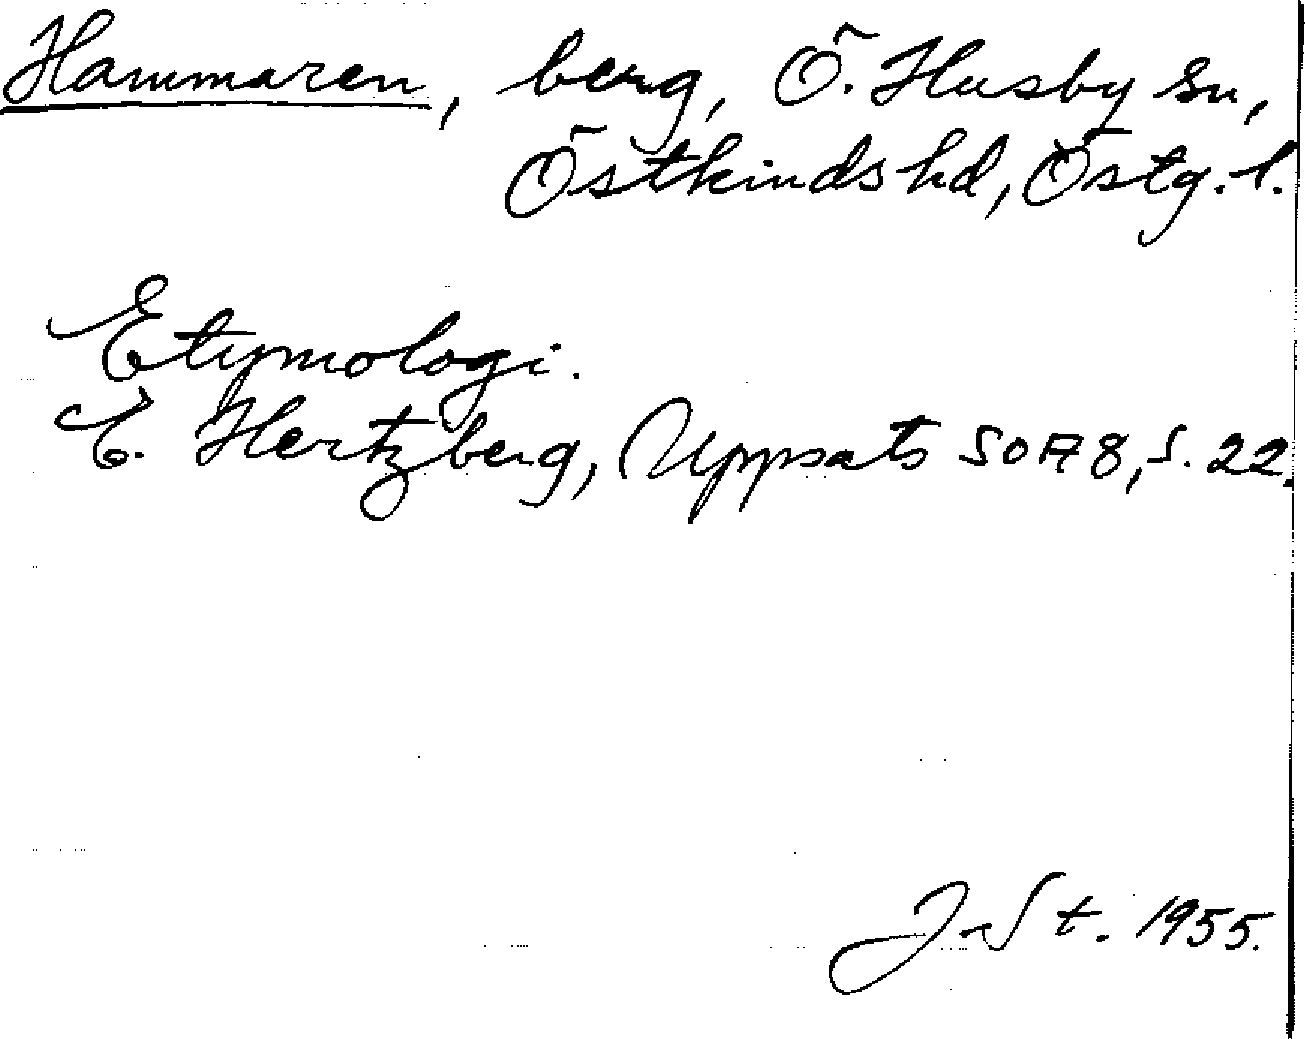 Hammaren, berg, Ö. Husby sn,
Östkinds hd, Östg. l.
Etymologi.
E. Hertzberg, Uppsats SOA 8, s. 22.
J. St. 1955.